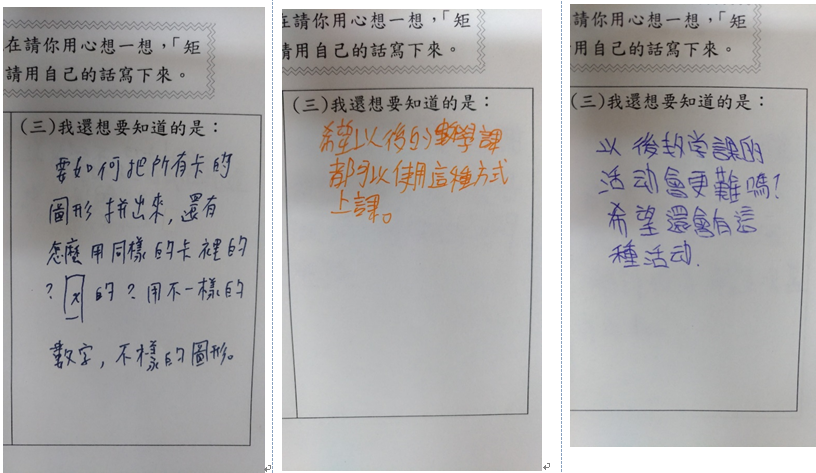 在請你用心想一想，「矩
請用自己的話寫下來。
(三)我還想要知道的是：
要如何把所有卡的
圖形拼出來，還有
怎麼用同樣的卡裡的
？x的？用不一樣的
數字，不樣的圖形。
在請你用心想一想，「矩
請用自己的話寫下來。
(三)我還想要知道的是：
希望以後的數學課
都可以使用這種方式
上課。
請你用心想一想，「矩
用自己的話寫下來。
(三)我還想要知道的是：
以後数学課的
活动會更難嗎？
希望還會有這
種活动.